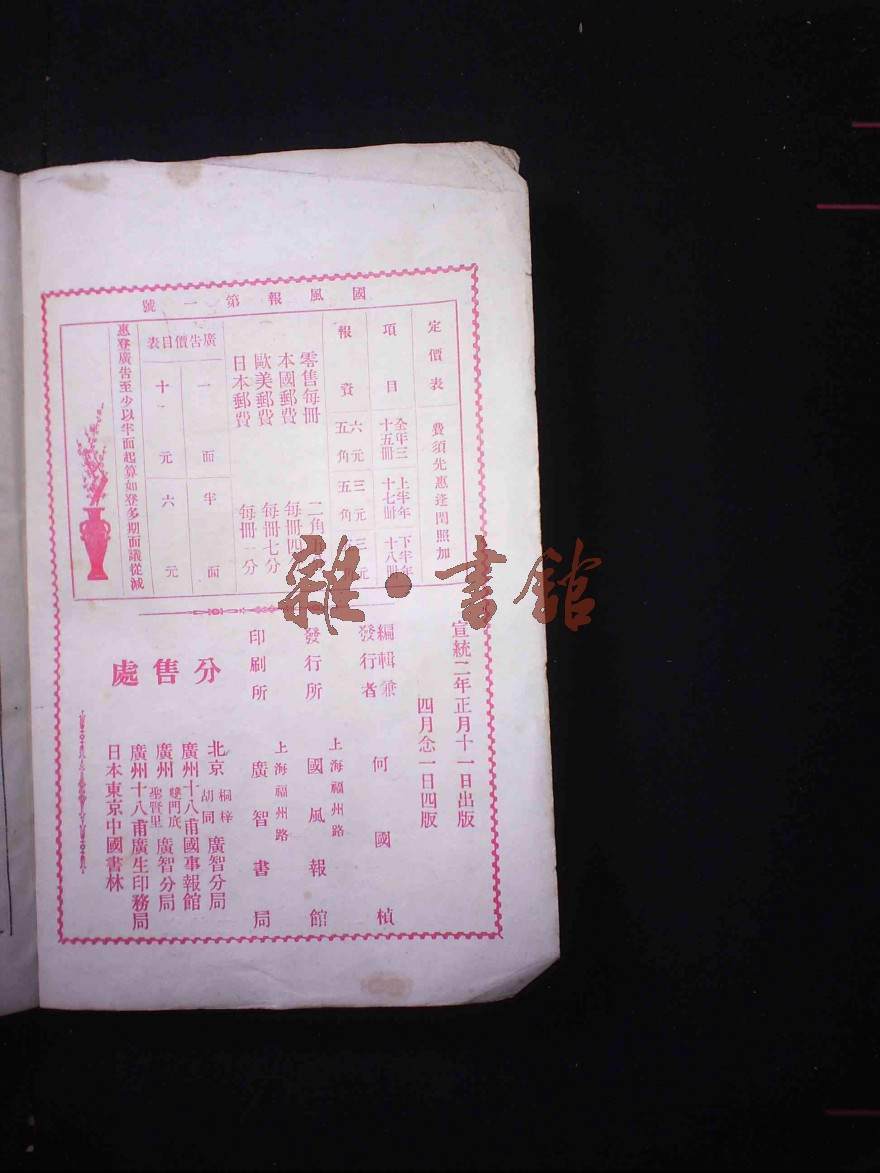 國風報第一號
定價表 費須先惠逢閏照加
項目 全年三十五冊 上半年十七冊 下半年十八冊
報資 六元五角 三元五角 三元
零售每冊 二角
本國郵費 每冊四
歐美郵費 每冊七分
日本郵費 每冊一分
廣告價目表
一面 半面
十元 六元
惠登廣告至少以半面起算如登多期面議從減
宣統二年正月十一日出版
四月念一日四版
編輯兼發行者 何國楨
發行所 上海福州路 國風報館
印刷所 上海福州路 廣智書局
分售處
北京 桐梓胡同 廣智分局
廣州十八甫國事報館
廣州 雙門底 聖賢里 廣智分局
廣州十八甫廣生印務局
日本東京中國書林
雜·書館